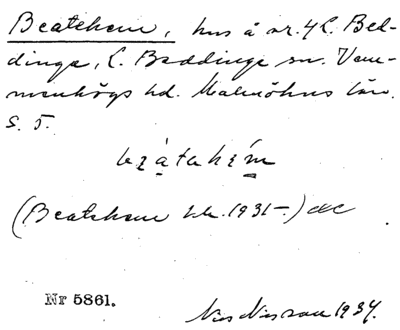 Beatehem, hus å nr. 4 L. Bed-
dinge, L. Beddinge sn. Vem-
menhögs hd. Malmöhus län.
s. 5.
(Beatehem 1931-)
Nr 5861.
Nils Nilsson 1934.